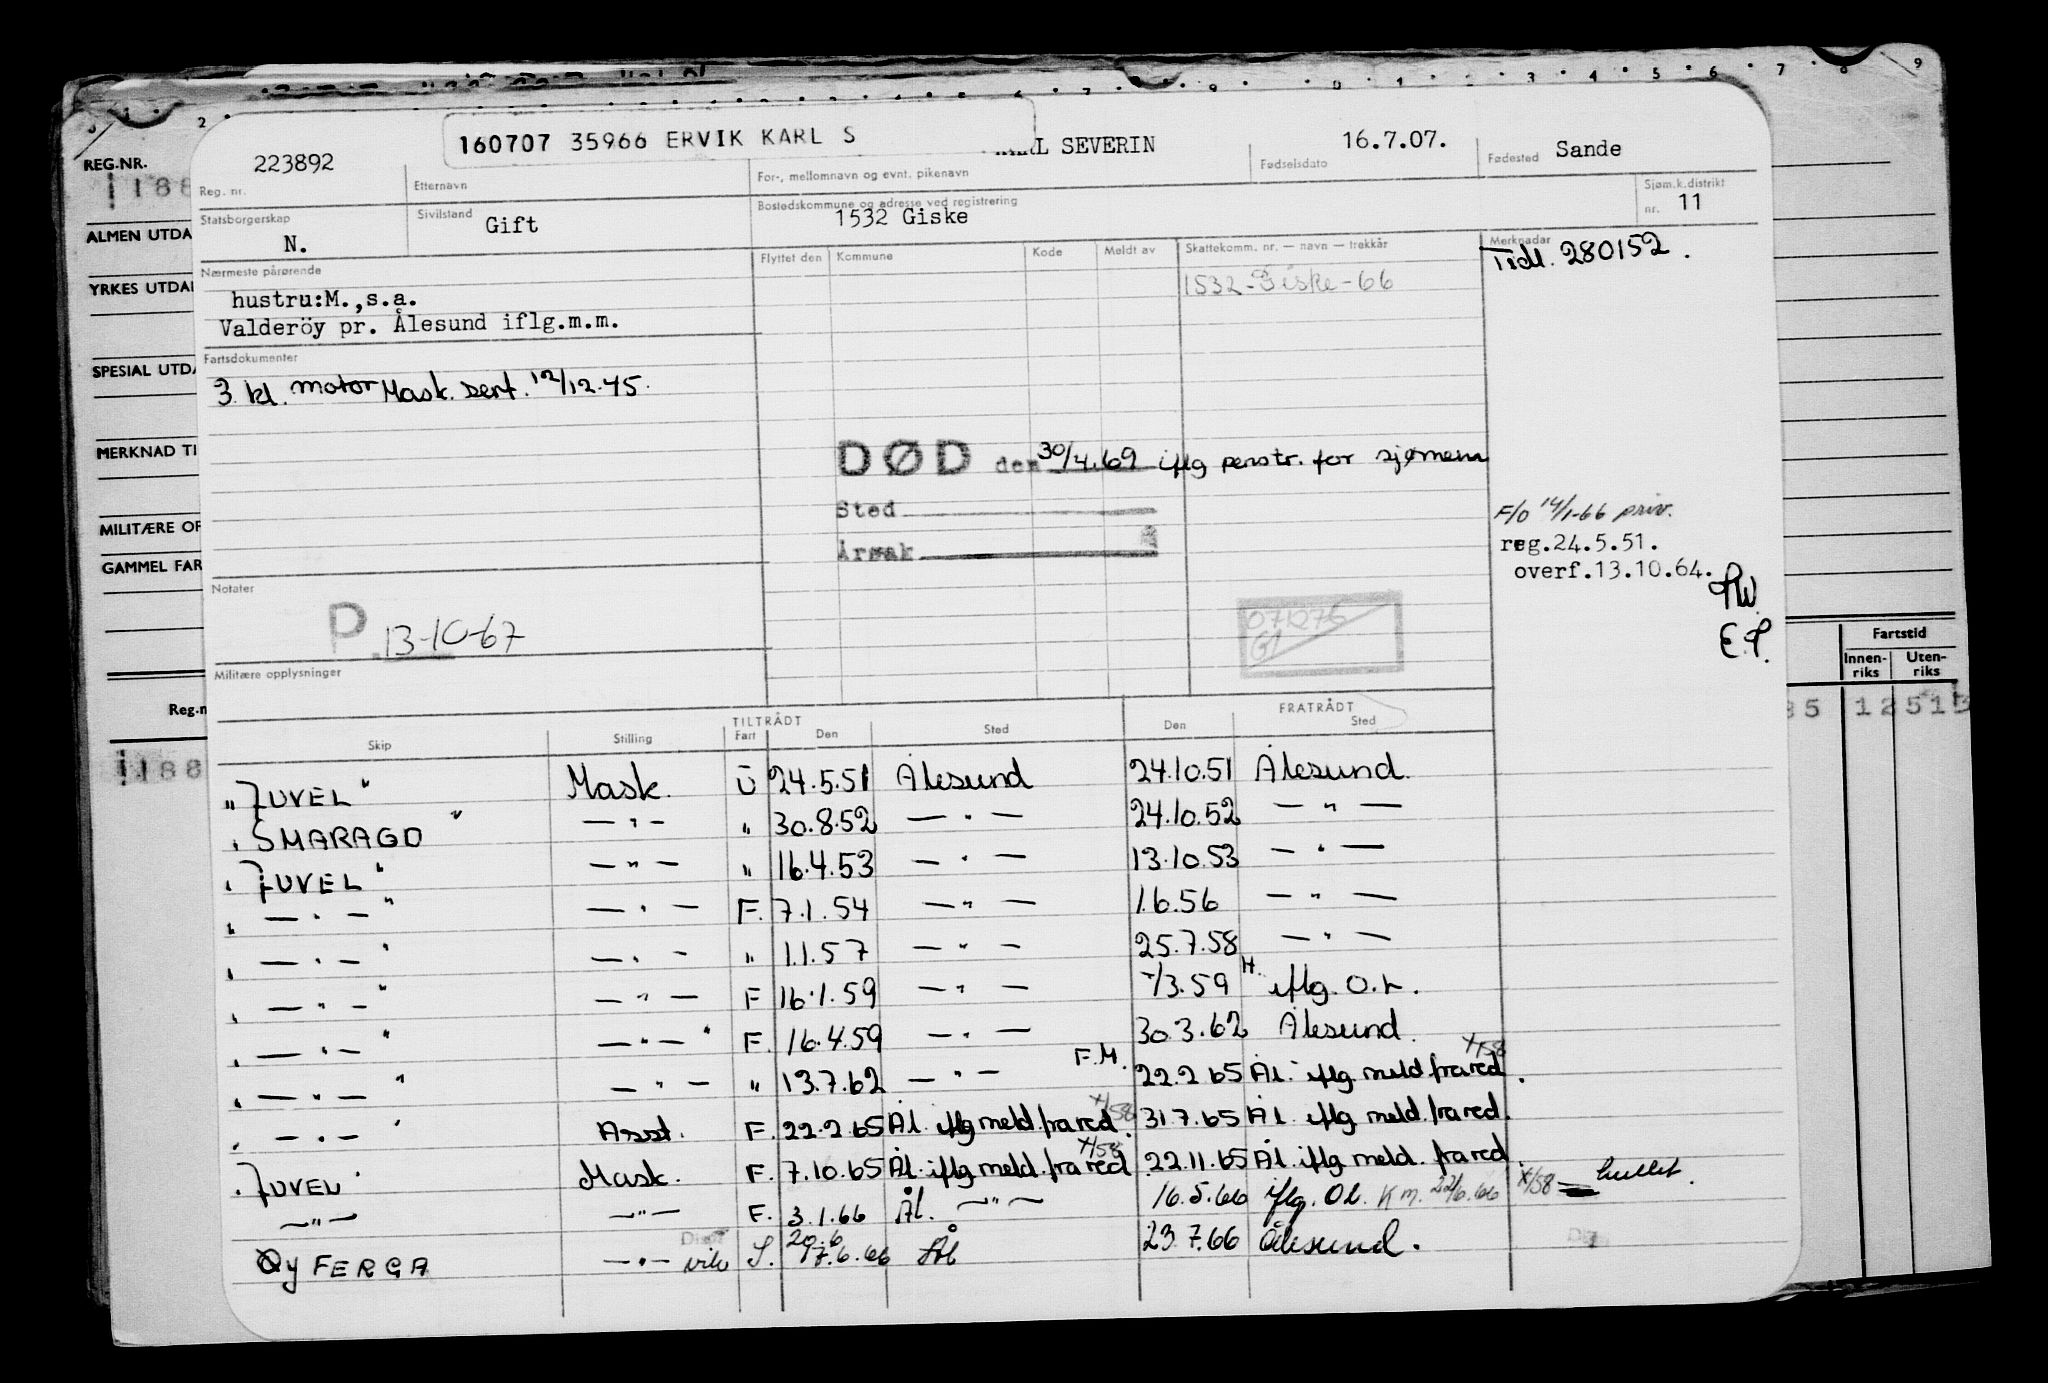 REG.NR.
160707 35966 ERVIK KARL S
223892
SEVERIN
16.7.07.
Sande
Reg. nr.
Etternavn
For-, mellomnavn og evnt. pikenavn
Fødselsdato
Fødested
ALMEN UTDA
Statsborgerskap
N.
Sivilstand
Gift
Bostedskommune og adresse ved registrering
1532 Giske
Sjøm.k.distrikt
nr. 11
YRKES UTDA
Nærmeste pårørende
Flyttet den
Kommune
Kode
Meldt av
Skattekomm. nr. — navn — trekkår
Merknadar
Tidl. 280152.
hustru:M.,s.a.
1532-Giske-66
Valderöy pr. Ålesund iflg.m.m.
SPESIAL UTDA
Fartsdokumenter
3. kl. motor Mask. sert. 12/12.45.
MERKNAD TI
DØD den 30/4.69 iflg penstr. for sjømenn
Sted
Årsak
MILITÆRE OP
GAMMEL FAR
F/O 14/1-66 priv.
reg.24.5.51.
overf.13.10.64.
E.P.
Notater
P. 13-10-67
071275
Militære opplysninger
Fartstid
Innen-riks
Uten-riks
TILTRÅDT
FRATRÅDT
Skip
Stilling
Fart
Den
Sted
Den
Sted
"JUVEL" Mask. U 24.5.51 Ålesund 24.10.51 Ålesund.
"SMARAGD" —"— " 30.8.52 —"— 24.10.52 —"—
"JUVEL" —"— " 16.4.53 —"— 13.10.53 —"—
"—"—" —"— F. 7.1.54 —"— 1.6.56 —"—
"—"—" —"— " 1.1.57 —"— 25.7.58 —"—
"—"—" —"— F 16.1.59 —"— -/3.59 M. iflg. O.L.
"—"—" —"— F. 16.4.59 —"— 30.3.62 Ålesund.
"—"—" —"— " 13.7.62 —"— F.M. 22.2 65 Ål. iflg. meld. fra red. x/58
"—"—" Asst. F. 22.2.65 Ål. iflg meld. fra red. x/58 31.7.65 Ål. iflg meld. fra red.
"JUVEL" Mask. F. 7.10.65 Ål. iflg meld. fra red x/58 22.11.65 Ål. iflg meld. fra red. x/58 = hullet.
—"— —"— F. 3.1.66 Ål. —"— 16.5.66 iflg. O.L. K m. 22/6.66
Øy FERGA —"— vik S. 20.6 17.6.66 Ål 23.7.66 Ålesund.